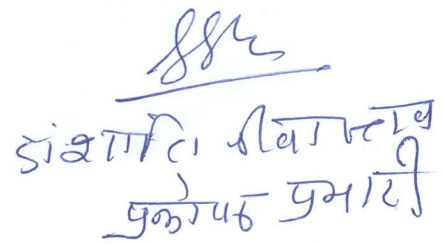 डॉ शान्ति श्रीवास्तव
प्रकोष्ठ प्रभारी